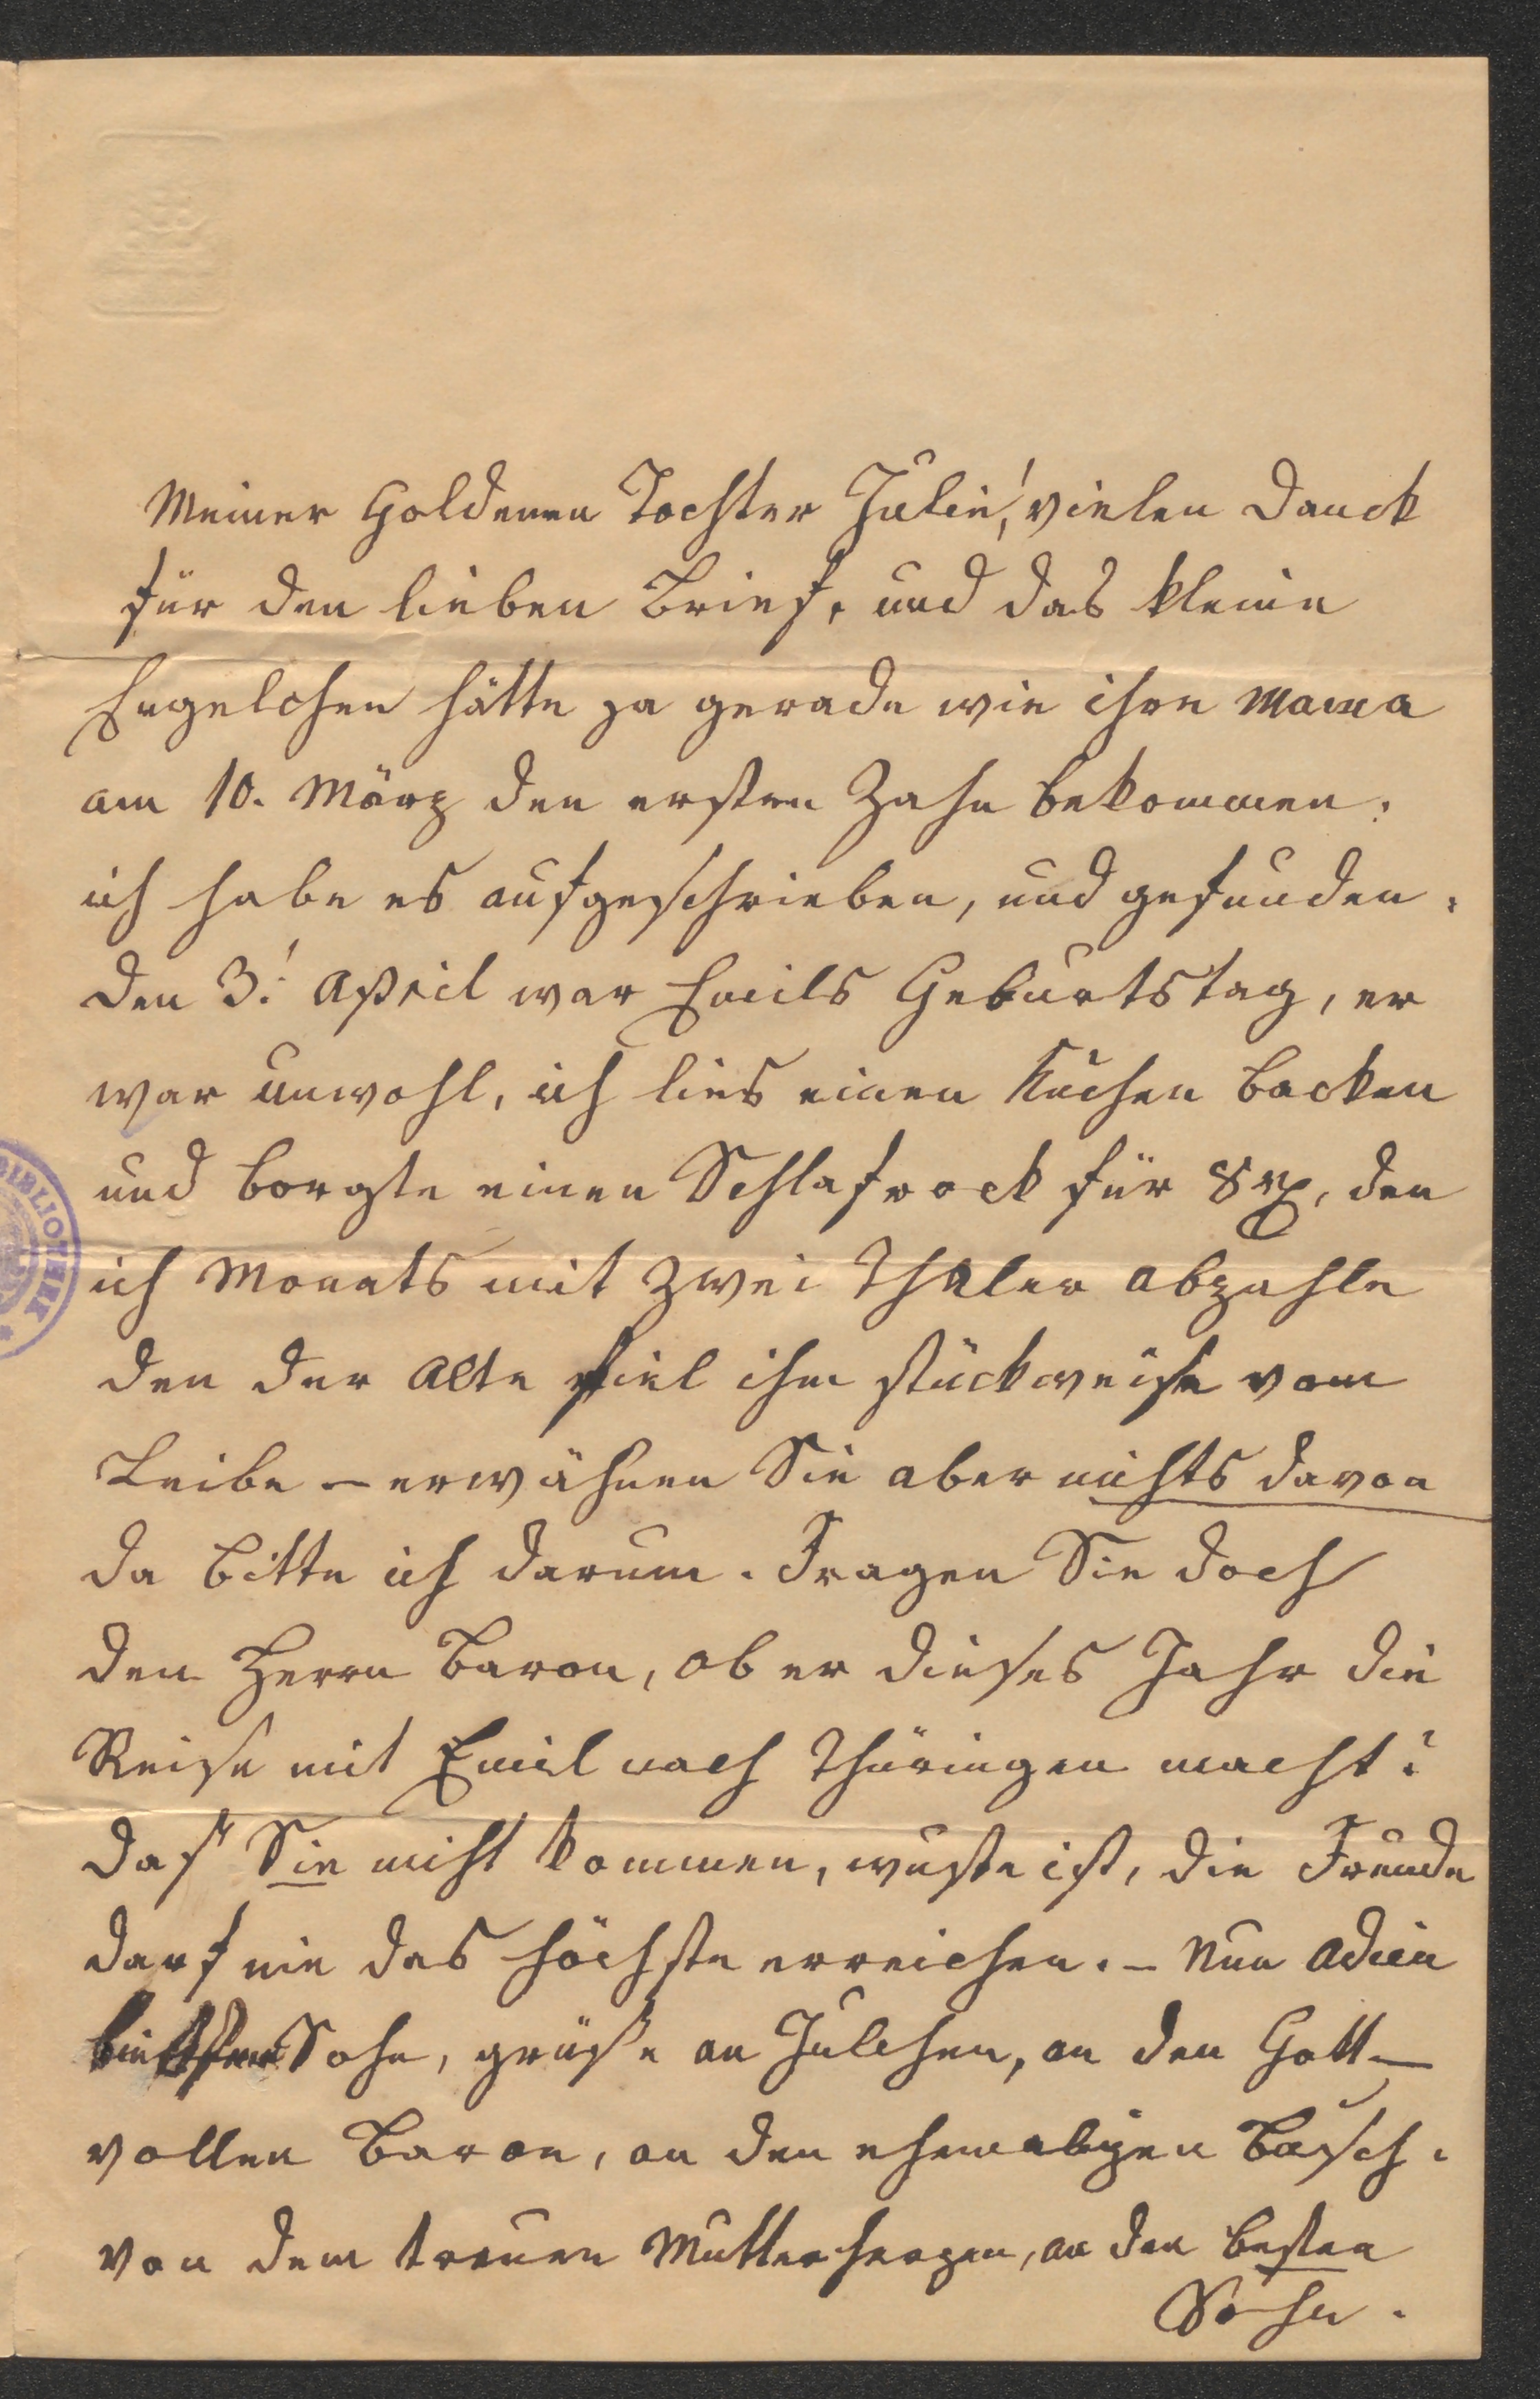 Meiner Goldenen Tochter Julie,! vielen Danck
für den lieben Brief, und das kleine
Engelchen hätte ja gerade wie ihre Mama
am 10. März den ersten Zahn bekommen.
ich habe es aufgeschrieben, und gefunden.
den 3! April war Emils Geburtstag, er
war unwohl, ich lies einen Kuchen backen
und borgte einen Schlafrock für 8 rℓ, den
ich Monats mit zwei Thaler abzahle
den der Alte fiel ihm stückweise vom
Leibe – erwähnen Sie aber nichts davon
da bitte ich darum. Fragen Sie doch
den Herrn Baron, ob er dieses Jahr die
Reise mit Emil nach Thüringen macht?
daß Sie nicht kommen, wuste ich, die Freude
darf nie das höchste erreichen. – Nun Adieu
Sohn, grüße an Julchen, an den Gott-
vollen Baron, an den ehemaligen Busch.
von dem treuen Mutterherzen, an den besten
Sohn.
BIBLIOTHEK